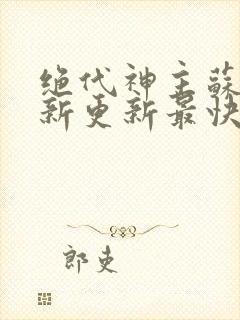 绝代神主蘇
新更新最快
郎吏